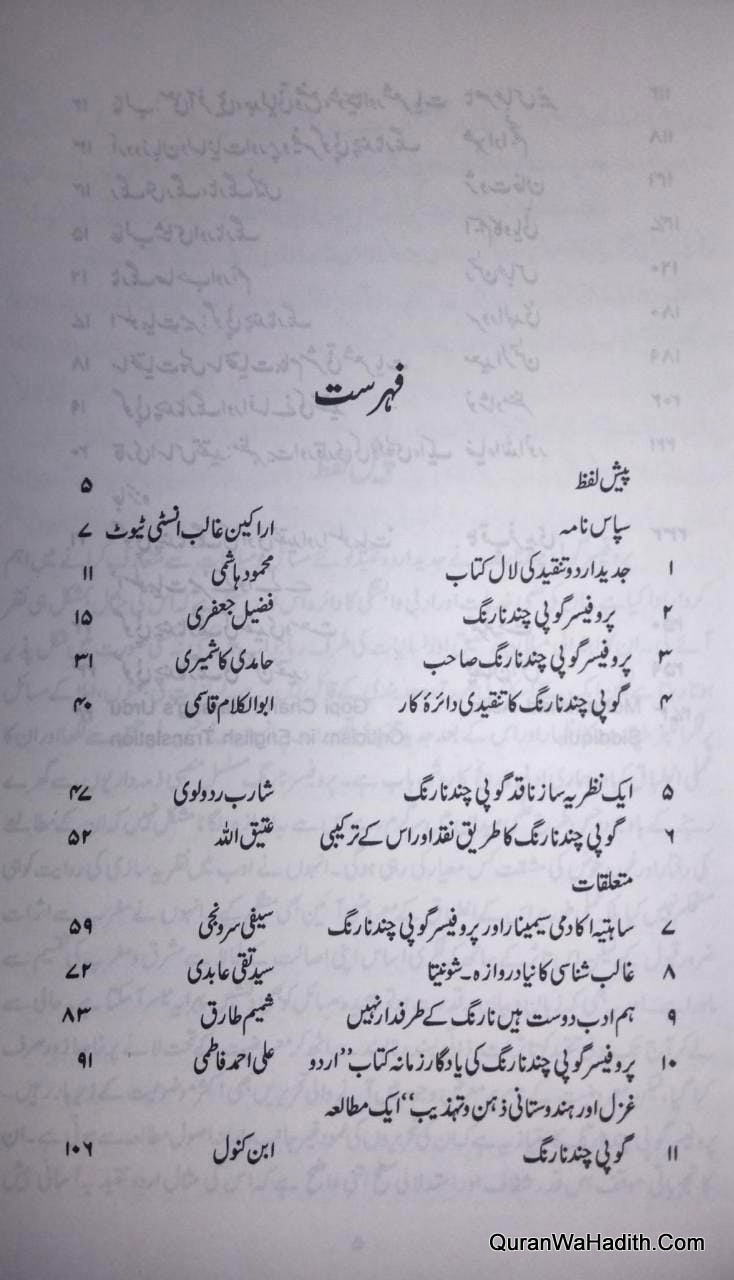 فہرست
پیش لفظ ۵
سپاس نامہ اراکین غالب انسٹی ٹیوٹ ۷
۱ جدید اردو تنقید کی لال کتاب محمود ہاشمی ۱۱
۲ پروفیسر گوپی چند نارنگ فضیل جعفری ۱۵
۳ پروفیسر گوپی چند نارنگ صاحب حامدی کاشمیری ۳۱
۴ گوپی چند نارنگ کا تنقیدی دائرۂ کار ابوالکلام قاسمی ۴۰
۵ ایک نظریہ ساز ناقد گوپی چند نارنگ شارب ردولوی ۴۷
۶ گوپی چند نارنگ کا طریق نقد اور اس کے ترکیبی عتیق اللہ ۵۲
متعلقات
۷ ساہتیہ اکادمی سیمینار اور پروفیسر گوپی چند نارنگ سیفی سرونجی ۵۹
۸ غالب شناسی کا نیا دروازہ۔ شونیتا سید تقی عابدی ۷۲
۹ ہم ادب دوست ہیں نارنگ کے طرفدار نہیں شمیم طارق ۸۳
۱۰ پروفیسر گوپی چند نارنگ کی یادگار زمانہ کتاب ’’اردو علی احمد فاطمی ۹۱
غزل اور ہندوستانی ذہن و تہذیب‘‘ ایک مطالعہ
۱۱ گوپی چند نارنگ ابن کنول ۱۰۶
QuranWaHadith.Com